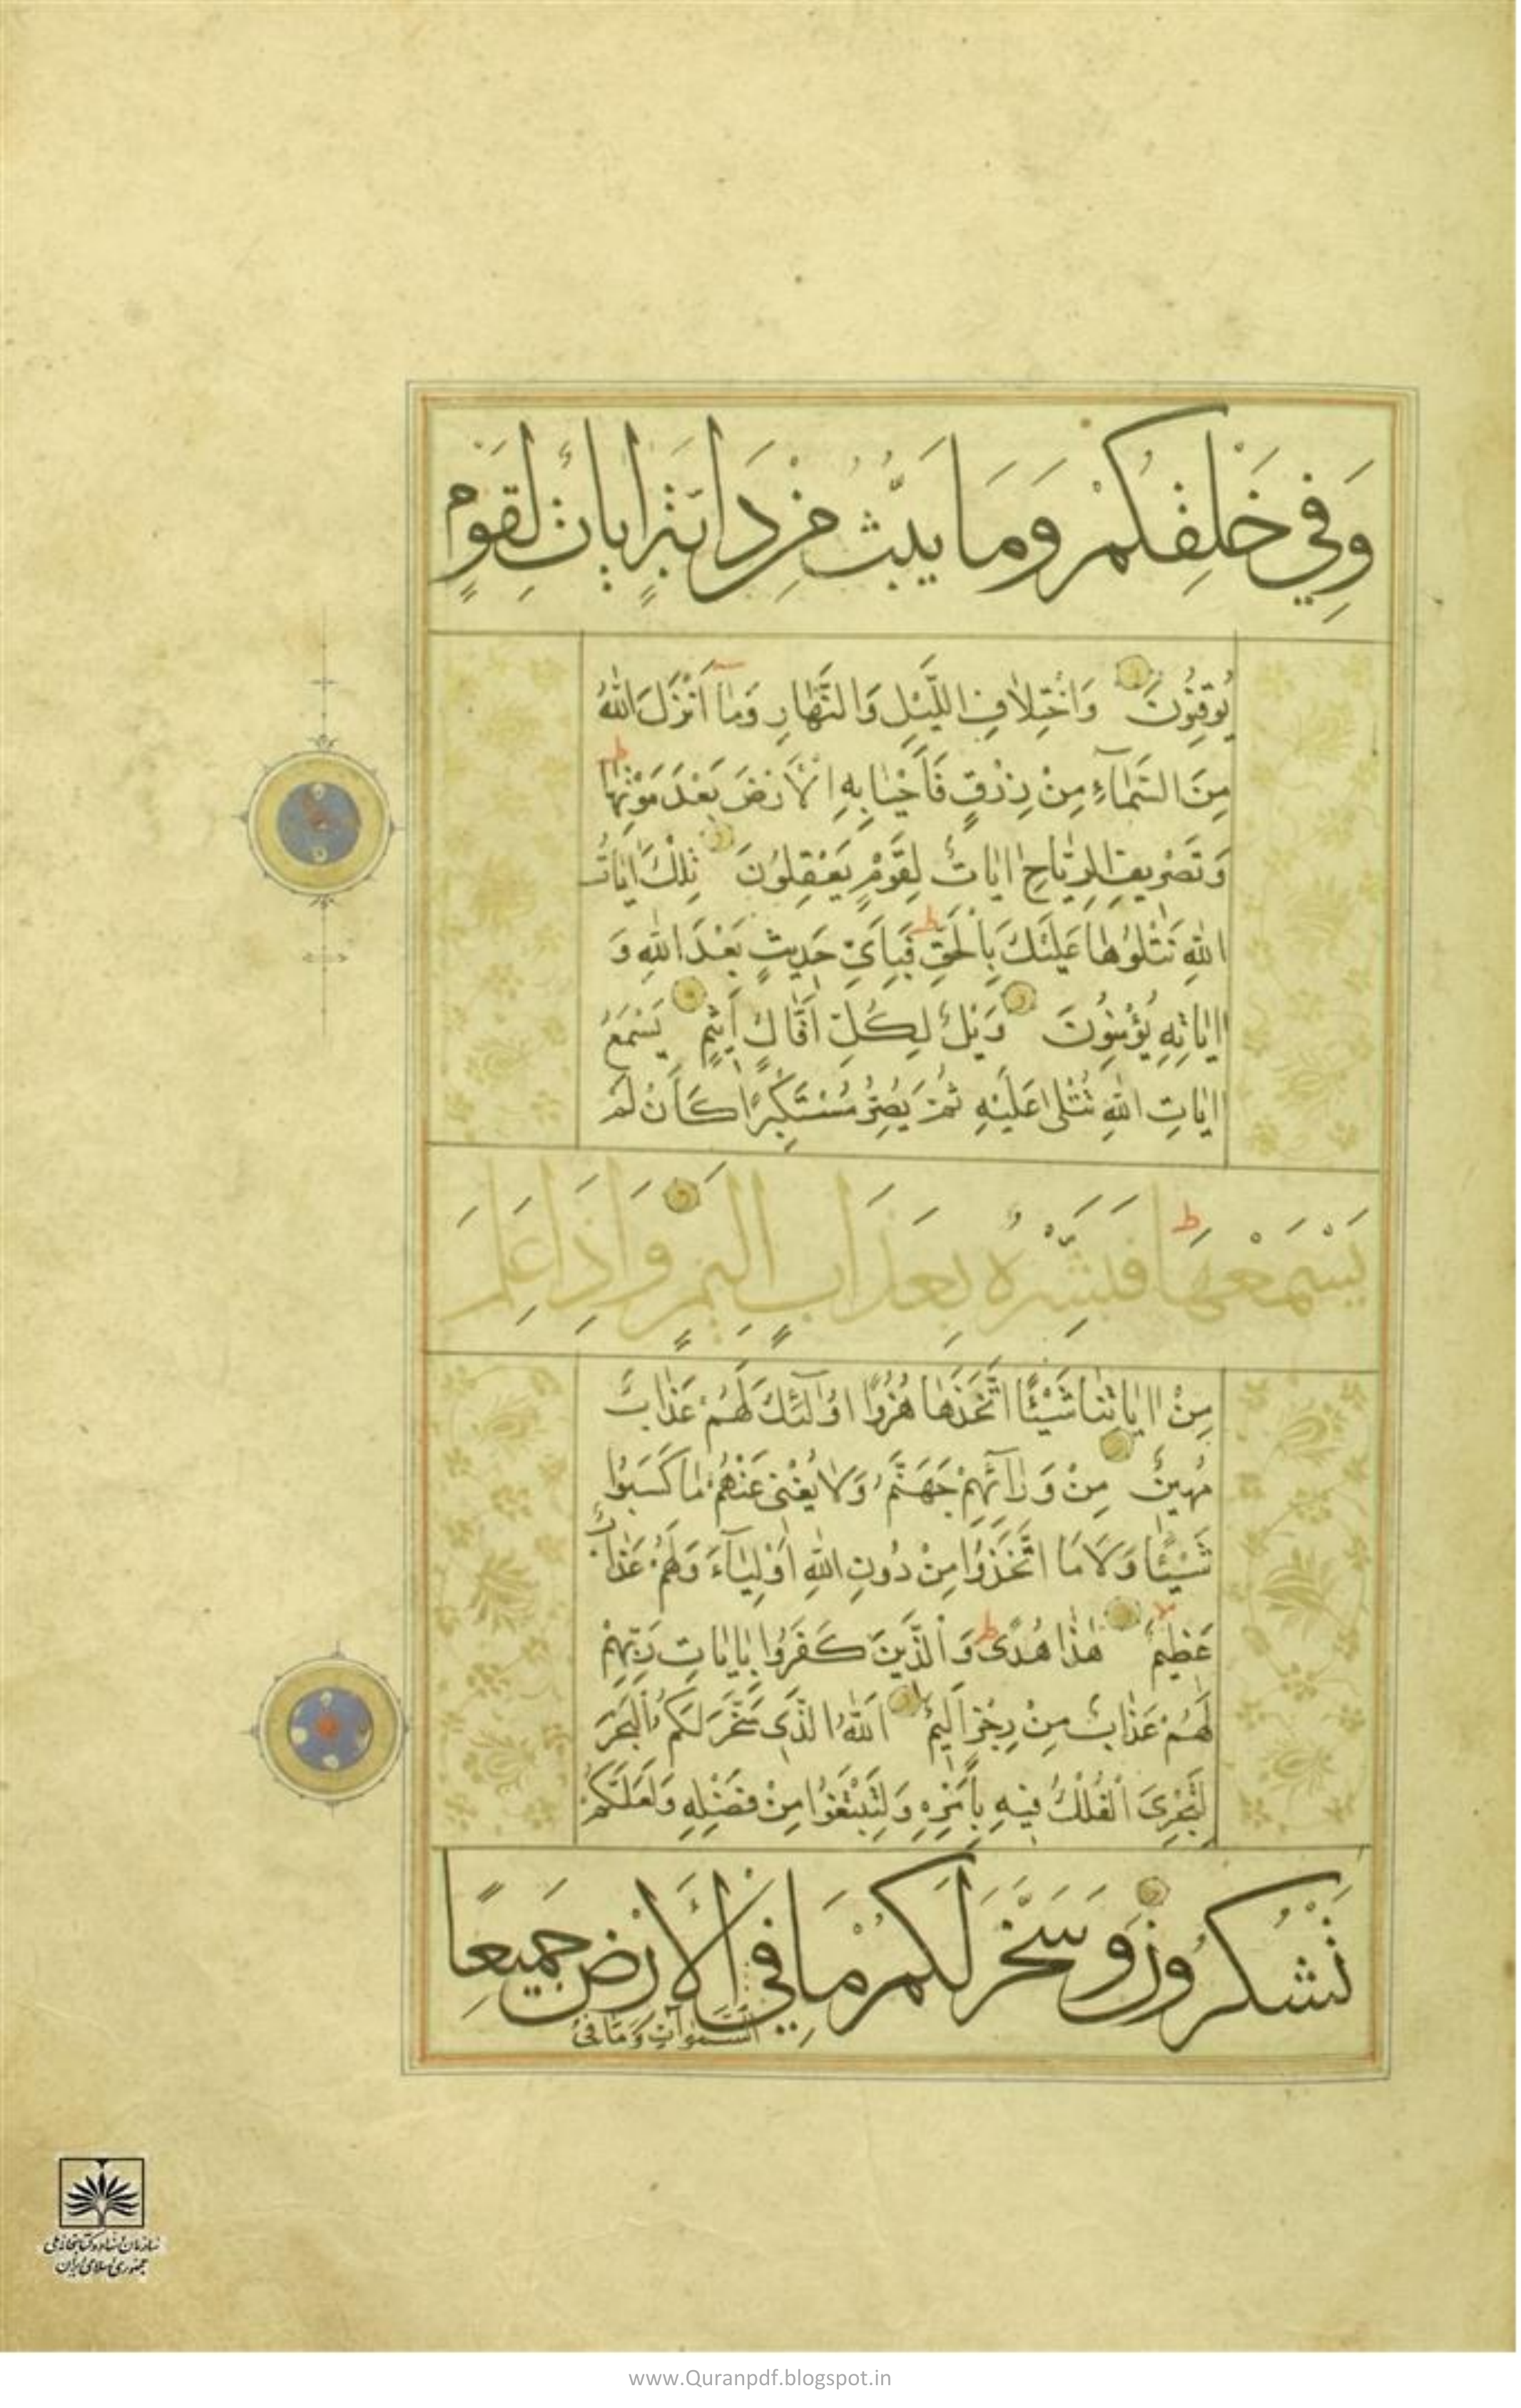 وَفِي خَلْقِكُمْ وَمَا يَبُثُّ مِنْ دَابَّةٍ اٰيَاتٌ لِقَوْمٍ
يُوقِنُونَ وَاخْتِلَافِ اللَّيْلِ وَالنَّهَارِ وَمَآ اَنْزَلَ اللّٰهُ
مِنَ السَّمَآءِ مِنْ رِزْقٍ فَاَحْيَا بِهِ الْاَرْضَ بَعْدَ مَوْتِهَا
وَتَصْرِيفِ الرِّيَاحِ اٰيَاتٌ لِقَوْمٍ يَعْقِلُونَ تِلْكَ اٰيَاتُ
اللّٰهِ نَتْلُوهَا عَلَيْكَ بِالْحَقِّ فَبِاَيِّ حَدِيثٍ بَعْدَ اللّٰهِ وَ
اٰيَاتِهِ يُؤْمِنُونَ وَيْلٌ لِكُلِّ اَفَّاكٍ اَثِيمٍ يَسْمَعُ
اٰيَاتِ اللّٰهِ تُتْلٰى عَلَيْهِ ثُمَّ يُصِرُّ مُسْتَكْبِرًا كَاَنْ لَمْ
يَسْمَعْهَا فَبَشِّرْهُ بِعَذَابٍ اَلِيمٍ وَاِذَا عَلِمَ
مِنْ اٰيَاتِنَا شَيْئًا اتَّخَذَهَا هُزُوًا اُولٰٓئِكَ لَهُمْ عَذَابٌ
مُهِينٌ مِنْ وَرَآئِهِمْ جَهَنَّمُ وَلَا يُغْنِي عَنْهُمْ مَا كَسَبُوا
شَيْئًا وَلَا مَا اتَّخَذُوا مِنْ دُونِ اللّٰهِ اَوْلِيَآءَ وَلَهُمْ عَذَابٌ
عَظِيمٌ هٰذَا هُدًى وَالَّذِينَ كَفَرُوا بِاٰيَاتِ رَبِّهِمْ
لَهُمْ عَذَابٌ مِنْ رِجْزٍ اَلِيمٌ اَللّٰهُ الَّذِي سَخَّرَ لَكُمُ الْبَحْرَ
لِتَجْرِيَ الْفُلْكُ فِيهِ بِاَمْرِهِ وَلِتَبْتَغُوا مِنْ فَضْلِهِ وَلَعَلَّكُمْ
تَشْكُرُونَ وَسَخَّرَ لَكُمْ مَا فِي الْاَرْضِ جَمِيعًا
السَّمٰوَاتِ وَمَا فِي
سازمان اسناد و کتابخانه ملی
جمهوری اسلامی ایران
www.Quranpdf.blogspot.in